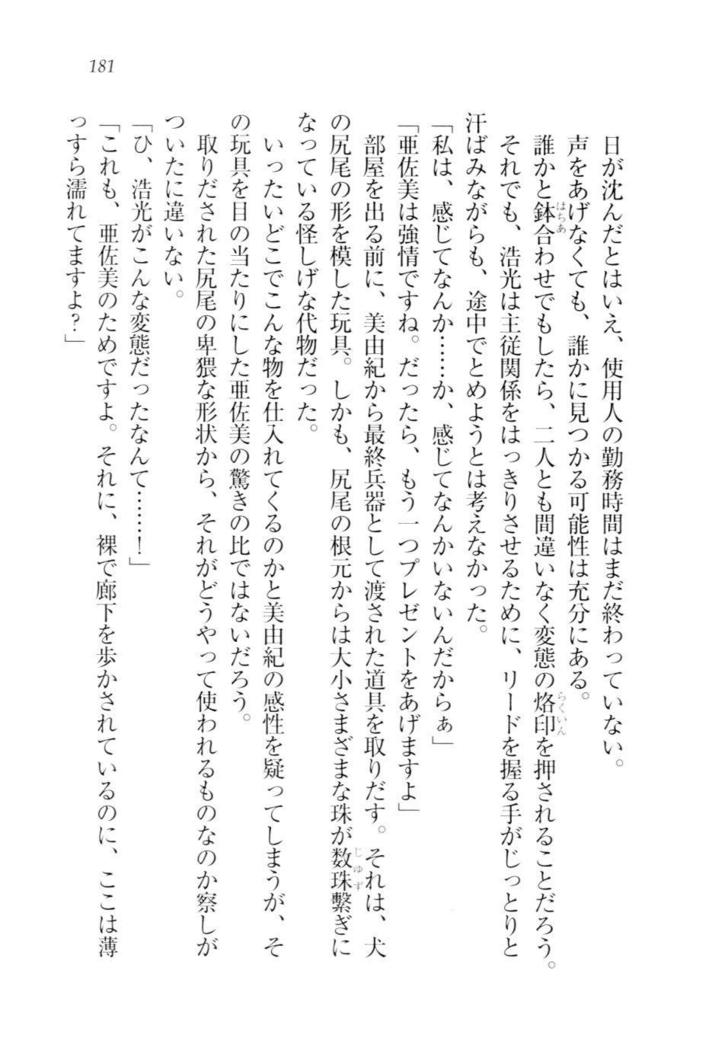 181
日が沈んだとはいえ、使用人の勤務時間はまだ終わっていない。
声をあげなくても、誰かに見つかる可能性は充分にある。
誰かと鉢合わせでもしたら、二人とも間違いなく変態の烙印を押されることだろう。
はちあ
らくいん
それでも、浩光は主従関係をはっきりさせるために、リードを握る手がじっとりと
汗ばみながらも、途中でとめようとは考えなかった。
「私は、感じてなんか……か、感じてなんかいないんだからぁ」
「亜佐美は強情ですね。だったら、もう一つプレゼントをあげますよ」
部屋を出る前に、美由紀から最終兵器として渡された道具を取りだす。それは、犬
の尻尾の形を模した玩具。しかも、尻尾の根元からは大小さまざまな珠が数珠繋ぎに
じゅず
なっている怪しげな代物だった。
いったいどこでこんな物を仕入れてくるのかと美由紀の感性を疑ってしまうが、そ
の玩具を目の当たりにした亜佐美の驚きの比ではないだろう。
取りだされた尻尾の卑猥な形状から、それがどうやって使われるものなのか察しが
ついたに違いない。
「ひ、浩光がこんな変態だったなんて……！」
「これも、亜佐美のためですよ。それに、裸で廊下を歩かされているのに、ここは薄
っすら濡れてますよ？」